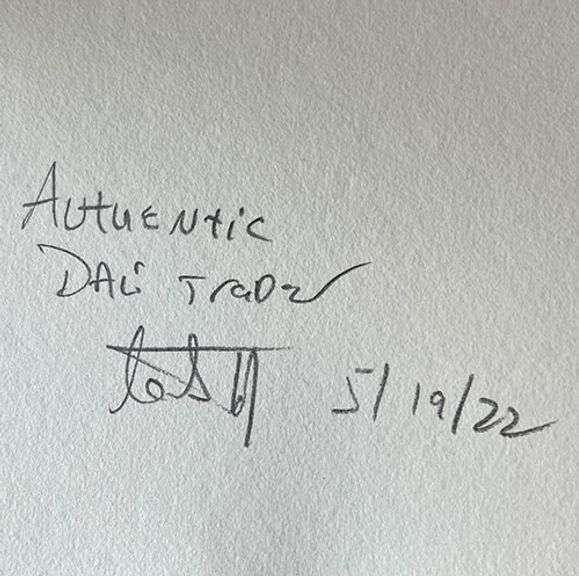 Authentic
Dali Trade
5/19/22